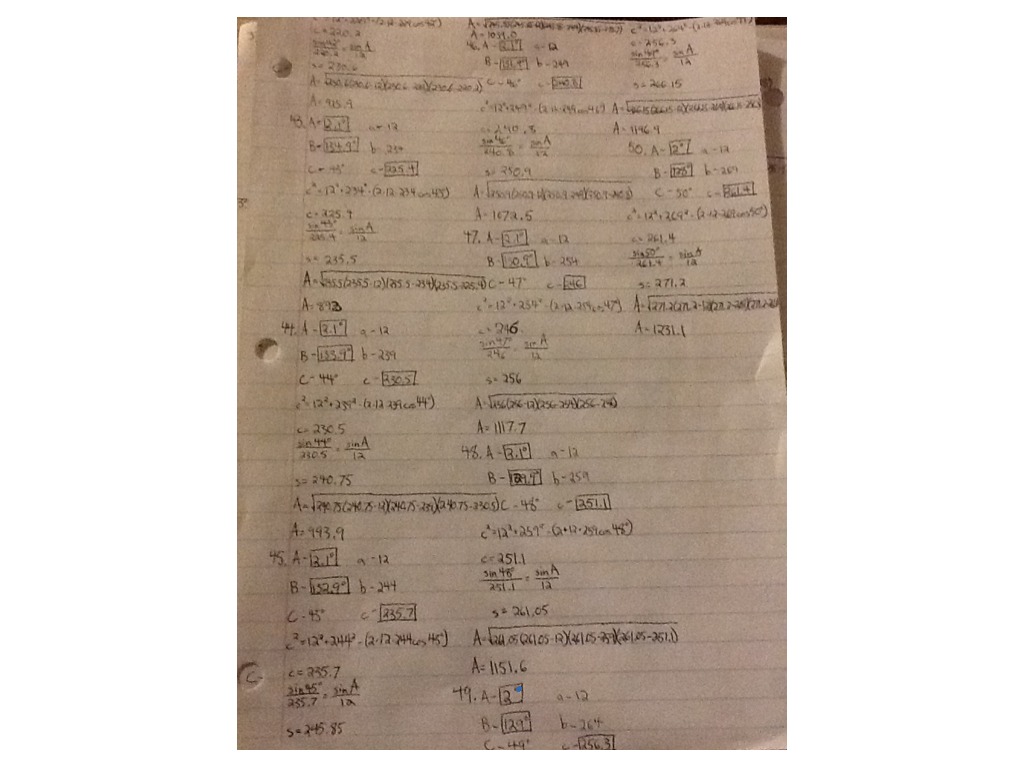 c=220.2
s=230.6
A=925.9
43. A-2.1° a-12
B-134.9° b-234
C-43° c-225.4
c²=12²+234²-(2·12·234cos43°)
c=225.4
sin43°/225.4=sinA/12
s=235.5
A=√235.5(235.5-12)(235.5-234)(235.5-225.4)
A=893
44. A-2.1° a-12
B-133.9° b-239
C-44° c-230.5
c²=12²+239²-(2·12·239cos44°)
c=230.5
sin44°/230.5=sinA/12
s=240.75
A=√240.75(240.75-12)(240.75-239)(240.75-230.5)
A=993.9
45. A-2.1° a-12
B-132.9° b-244
C-45° c-235.7
c²=12²+244²-(2·12·244cos45°)
c=235.7
sin45°/235.7=sinA/12
s=245.85
A=1039.0
46. A-2.1° a-12
B-131.9° b-249
C-46° c-240.8
c²=12²+249²-(2·12·249cos46°)
c=240.8
sin46°/240.8=sinA/12
s=250.9
A=√250.9(250.9-12)(250.9-249)(250.9-240.8)
A=1072.5
47. A-2.1° a-12
B-130.9° b-254
C-47° c-246
c²=12²+254²-(2·12·254cos47°)
c=246
sin47°/246=sinA/12
s=256
A=√256(256-12)(256-254)(256-246)
A=1117.7
48. A-2.1° a-12
B-129.9° b-259
C-48° c-251.1
c²=12²+259²-(2·12·259cos48°)
c=251.1
sin48°/251.1=sinA/12
s=261.05
A=√261.05(261.05-12)(261.05-259)(261.05-251.1)
A=1151.6
49. A-2° a-12
B-129° b-264
C-49° c-256.3
c=256.3
sin49°/256.3=sinA/12
s=266.15
A=√266.15(266.15-12)(266.15-264)(266.15-256.3)
A=1196.4
50. A-2° a-12
B-128° b-269
C-50° c-261.4
c²=12²+269²-(2·12·269cos50°)
c=261.4
sin50°/261.4=sinA/12
s=271.2
A=√271.2(271.2-12)(271.2-269)(271.2-261.4)
A=1231.1